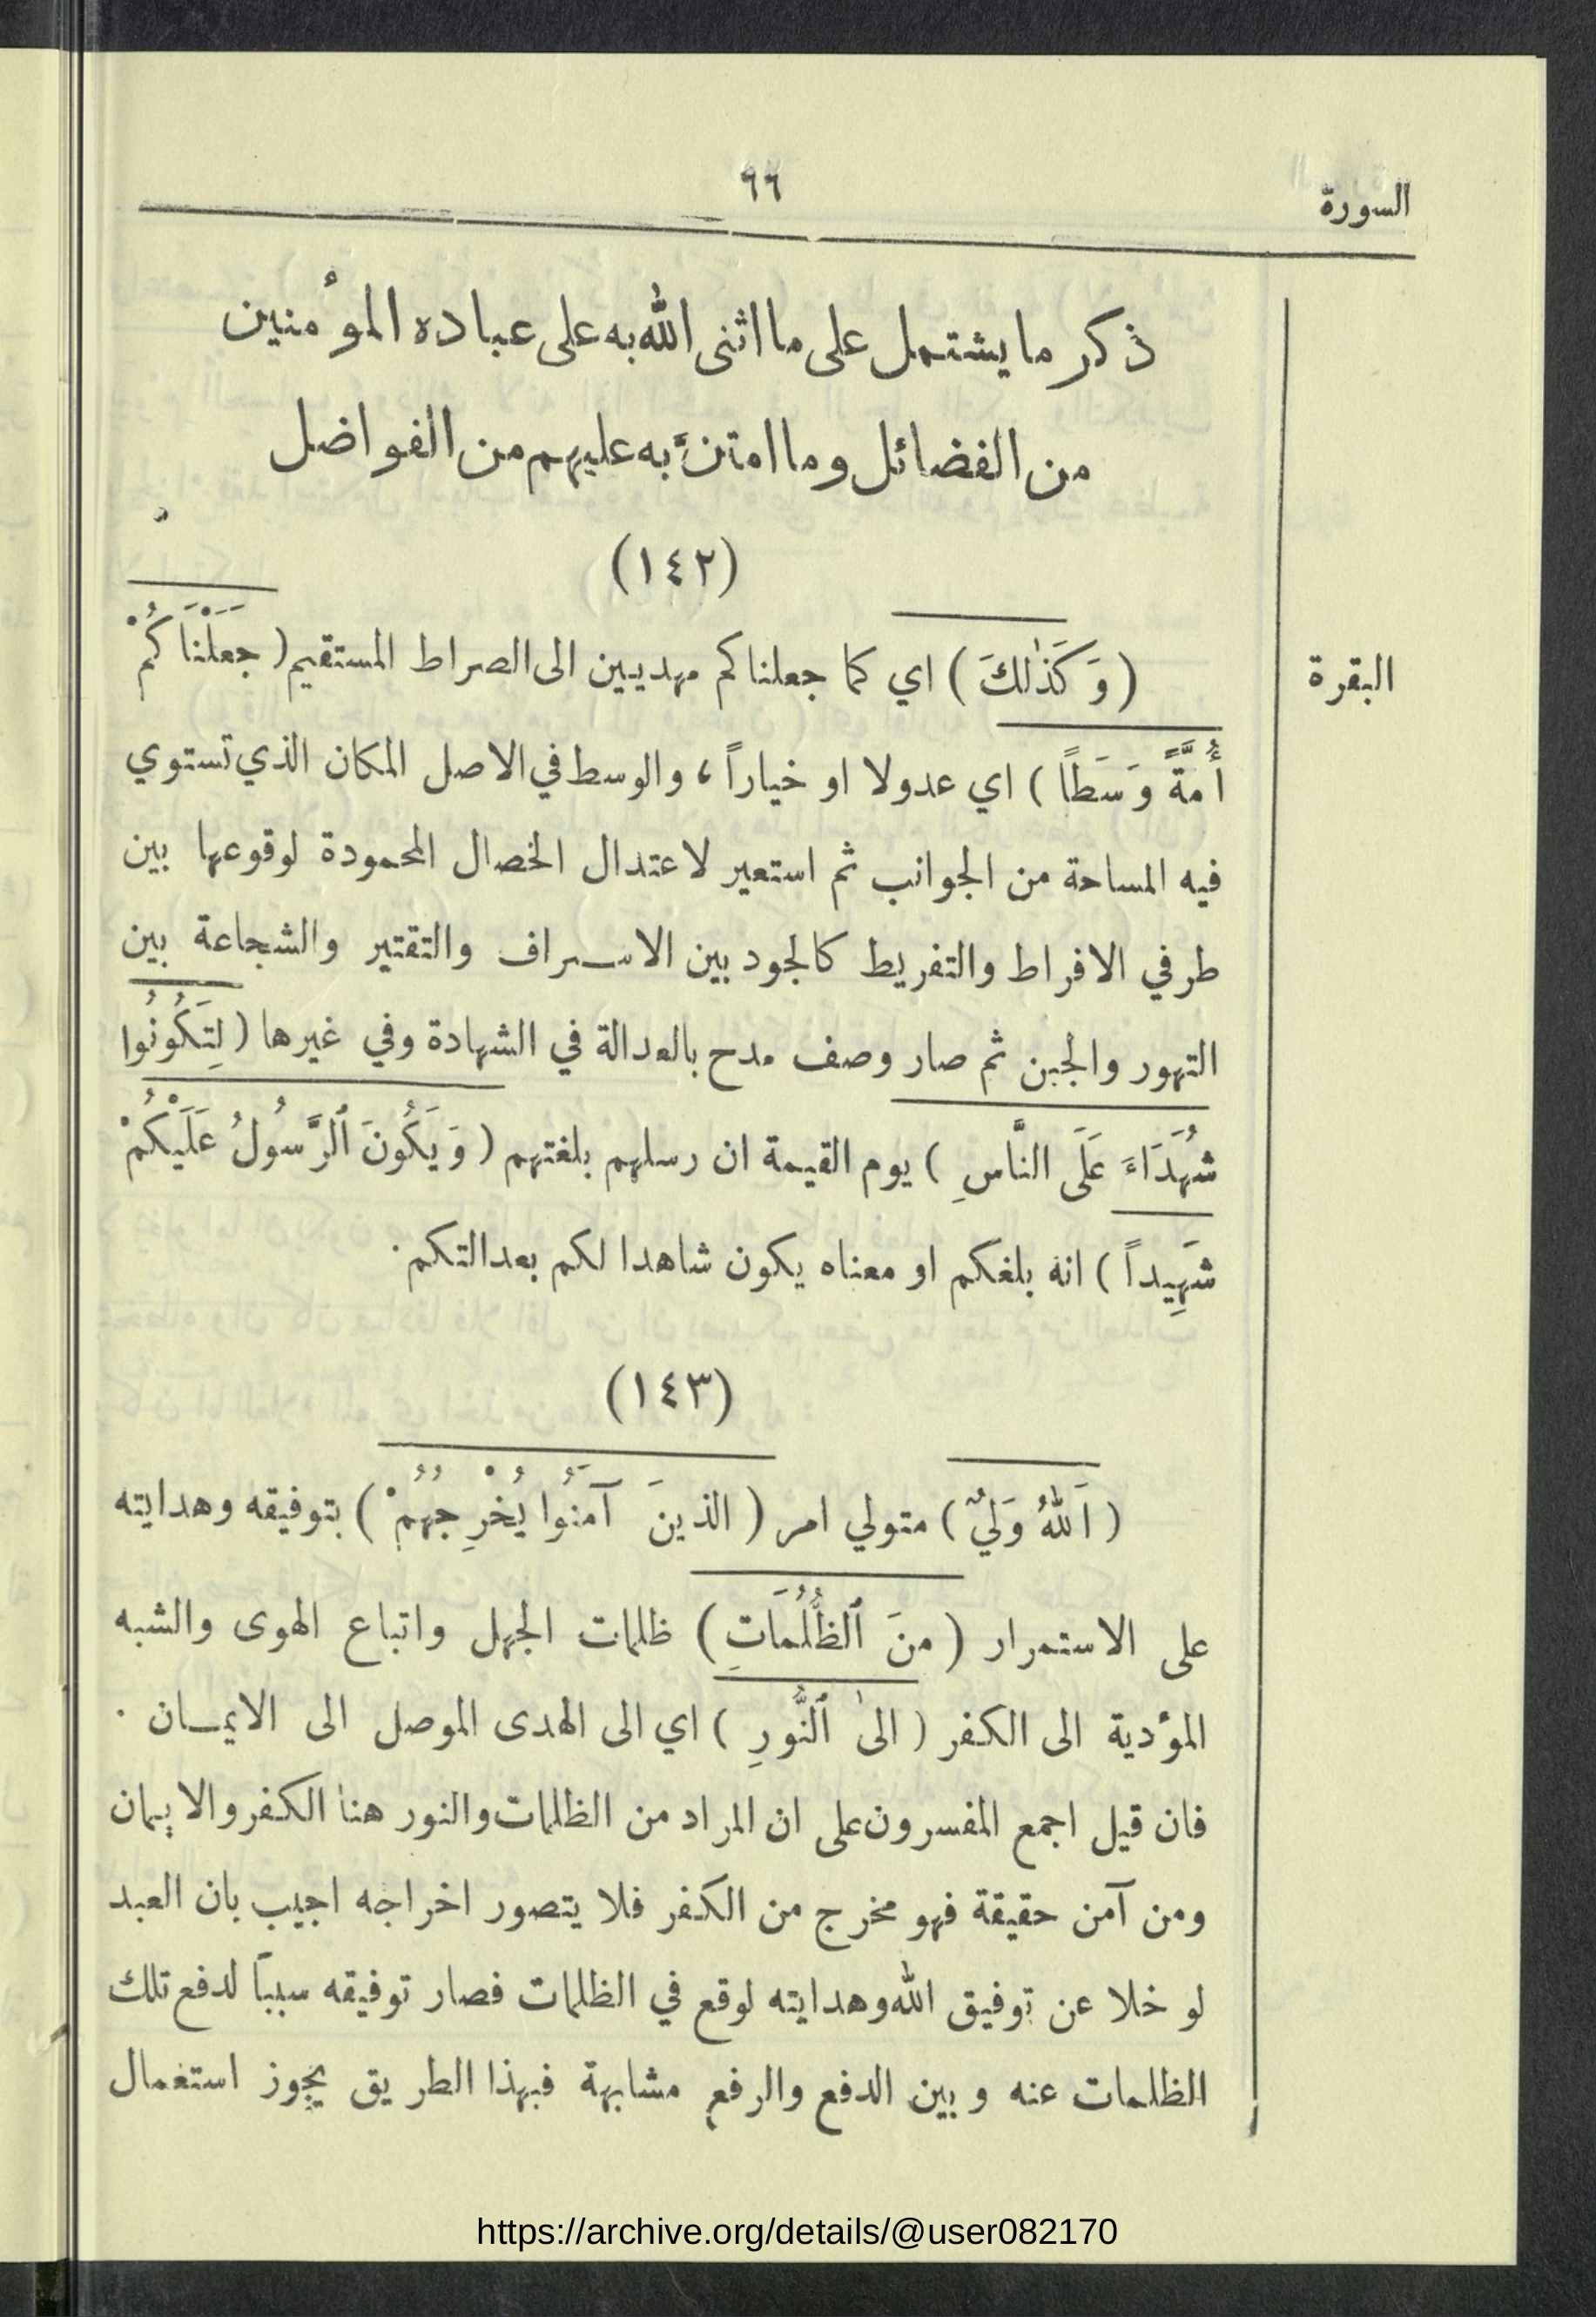 السورة
٦٦
ذكر ما يشتمل على ما اثنى الله به على عباده المؤمنين
من الفضائل وما امتنَّ به عليهم من الفواضل
(١٤٢)
البقرة
(وَكَذٰلكَ) اي كما جعلناكم مهديين الى الصراط المستقيم (جعَلْنَاكُمْ
أُمَّةً وَسَطًا) اي عدولا او خياراً، والوسط في الاصل المكان الذي تستوي
فيه المساحة من الجوانب ثم استعير لاعتدال الخصال المحمودة لوقوعها بين
طرفي الافراط والتفريط كالجود بين الاسراف والتقتير والشجاعة بين
التهور والجبن ثم صار وصف مدح بالعدالة في الشهادة وفي غيرها (لِتَكُونُوا
شُهَدَاءَ عَلَى النَّاسِ) يوم القيمة ان رسلهم بلغتهم (وَيَكُونَ ٱلرَّسُولُ عَلَيْكُمْ
شَهِيداً) انه بلغكم او معناه يكون شاهدا لكم بعدالتكم.
(١٤٣)
(اَللهُ وَليُّ) متولي امر (الذينَ آمَنُوا يُخْرِجُهُمْ) بتوفيقه وهدايته
على الاستمرار (منَ ٱلظُّلُمَاتِ) ظلمات الجهل واتباع الهوى والشبه
المؤدية الى الكفر (الىٰ ٱلنُّورِ) اي الى الهدى الموصل الى الايمان.
فان قيل اجمع المفسرون على ان المراد من الظلمات والنور هنا الكفر والايمان
ومن آمن حقيقة فهو مخرج من الكفر فلا يتصور اخراجه اجيب بان العبد
لو خلا عن توفيق الله وهدايته لوقع في الظلمات فصار توفيقه سبباً لدفع تلك
الظلمات عنه وبين الدفع والرفع مشابهة فبهذا الطريق يجوز استعمال
https://archive.org/details/@user082170